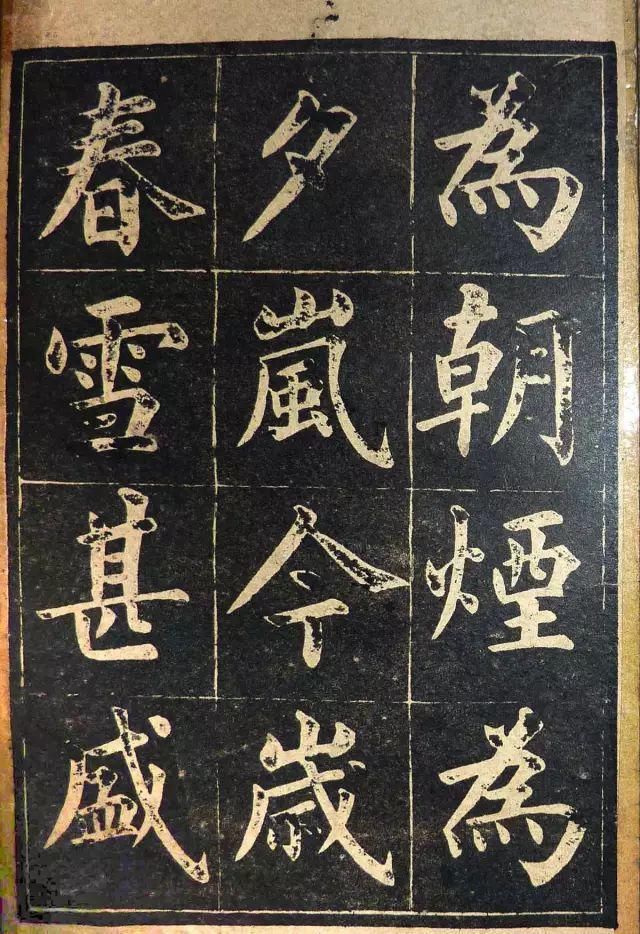 為朝煙為
夕嵐今歳
春雪甚盛